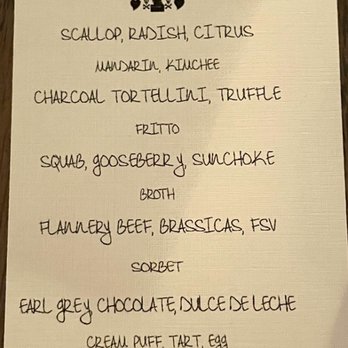 SCALLOP, RADISH, CITRUS
MANDARIN, KIMCHEE
CHARCOAL TORTELLINI, TRUFFLE
FRITTO
SQUAB, gOOSEBERRy, SUNCHOKE
BROTH
FLANNERy BEEF, BRASSICAS, FSV
SORBET
EARL gREy CHOCOLATE, DULCE DE LECHE
CREAM PUFF, TART, Egg